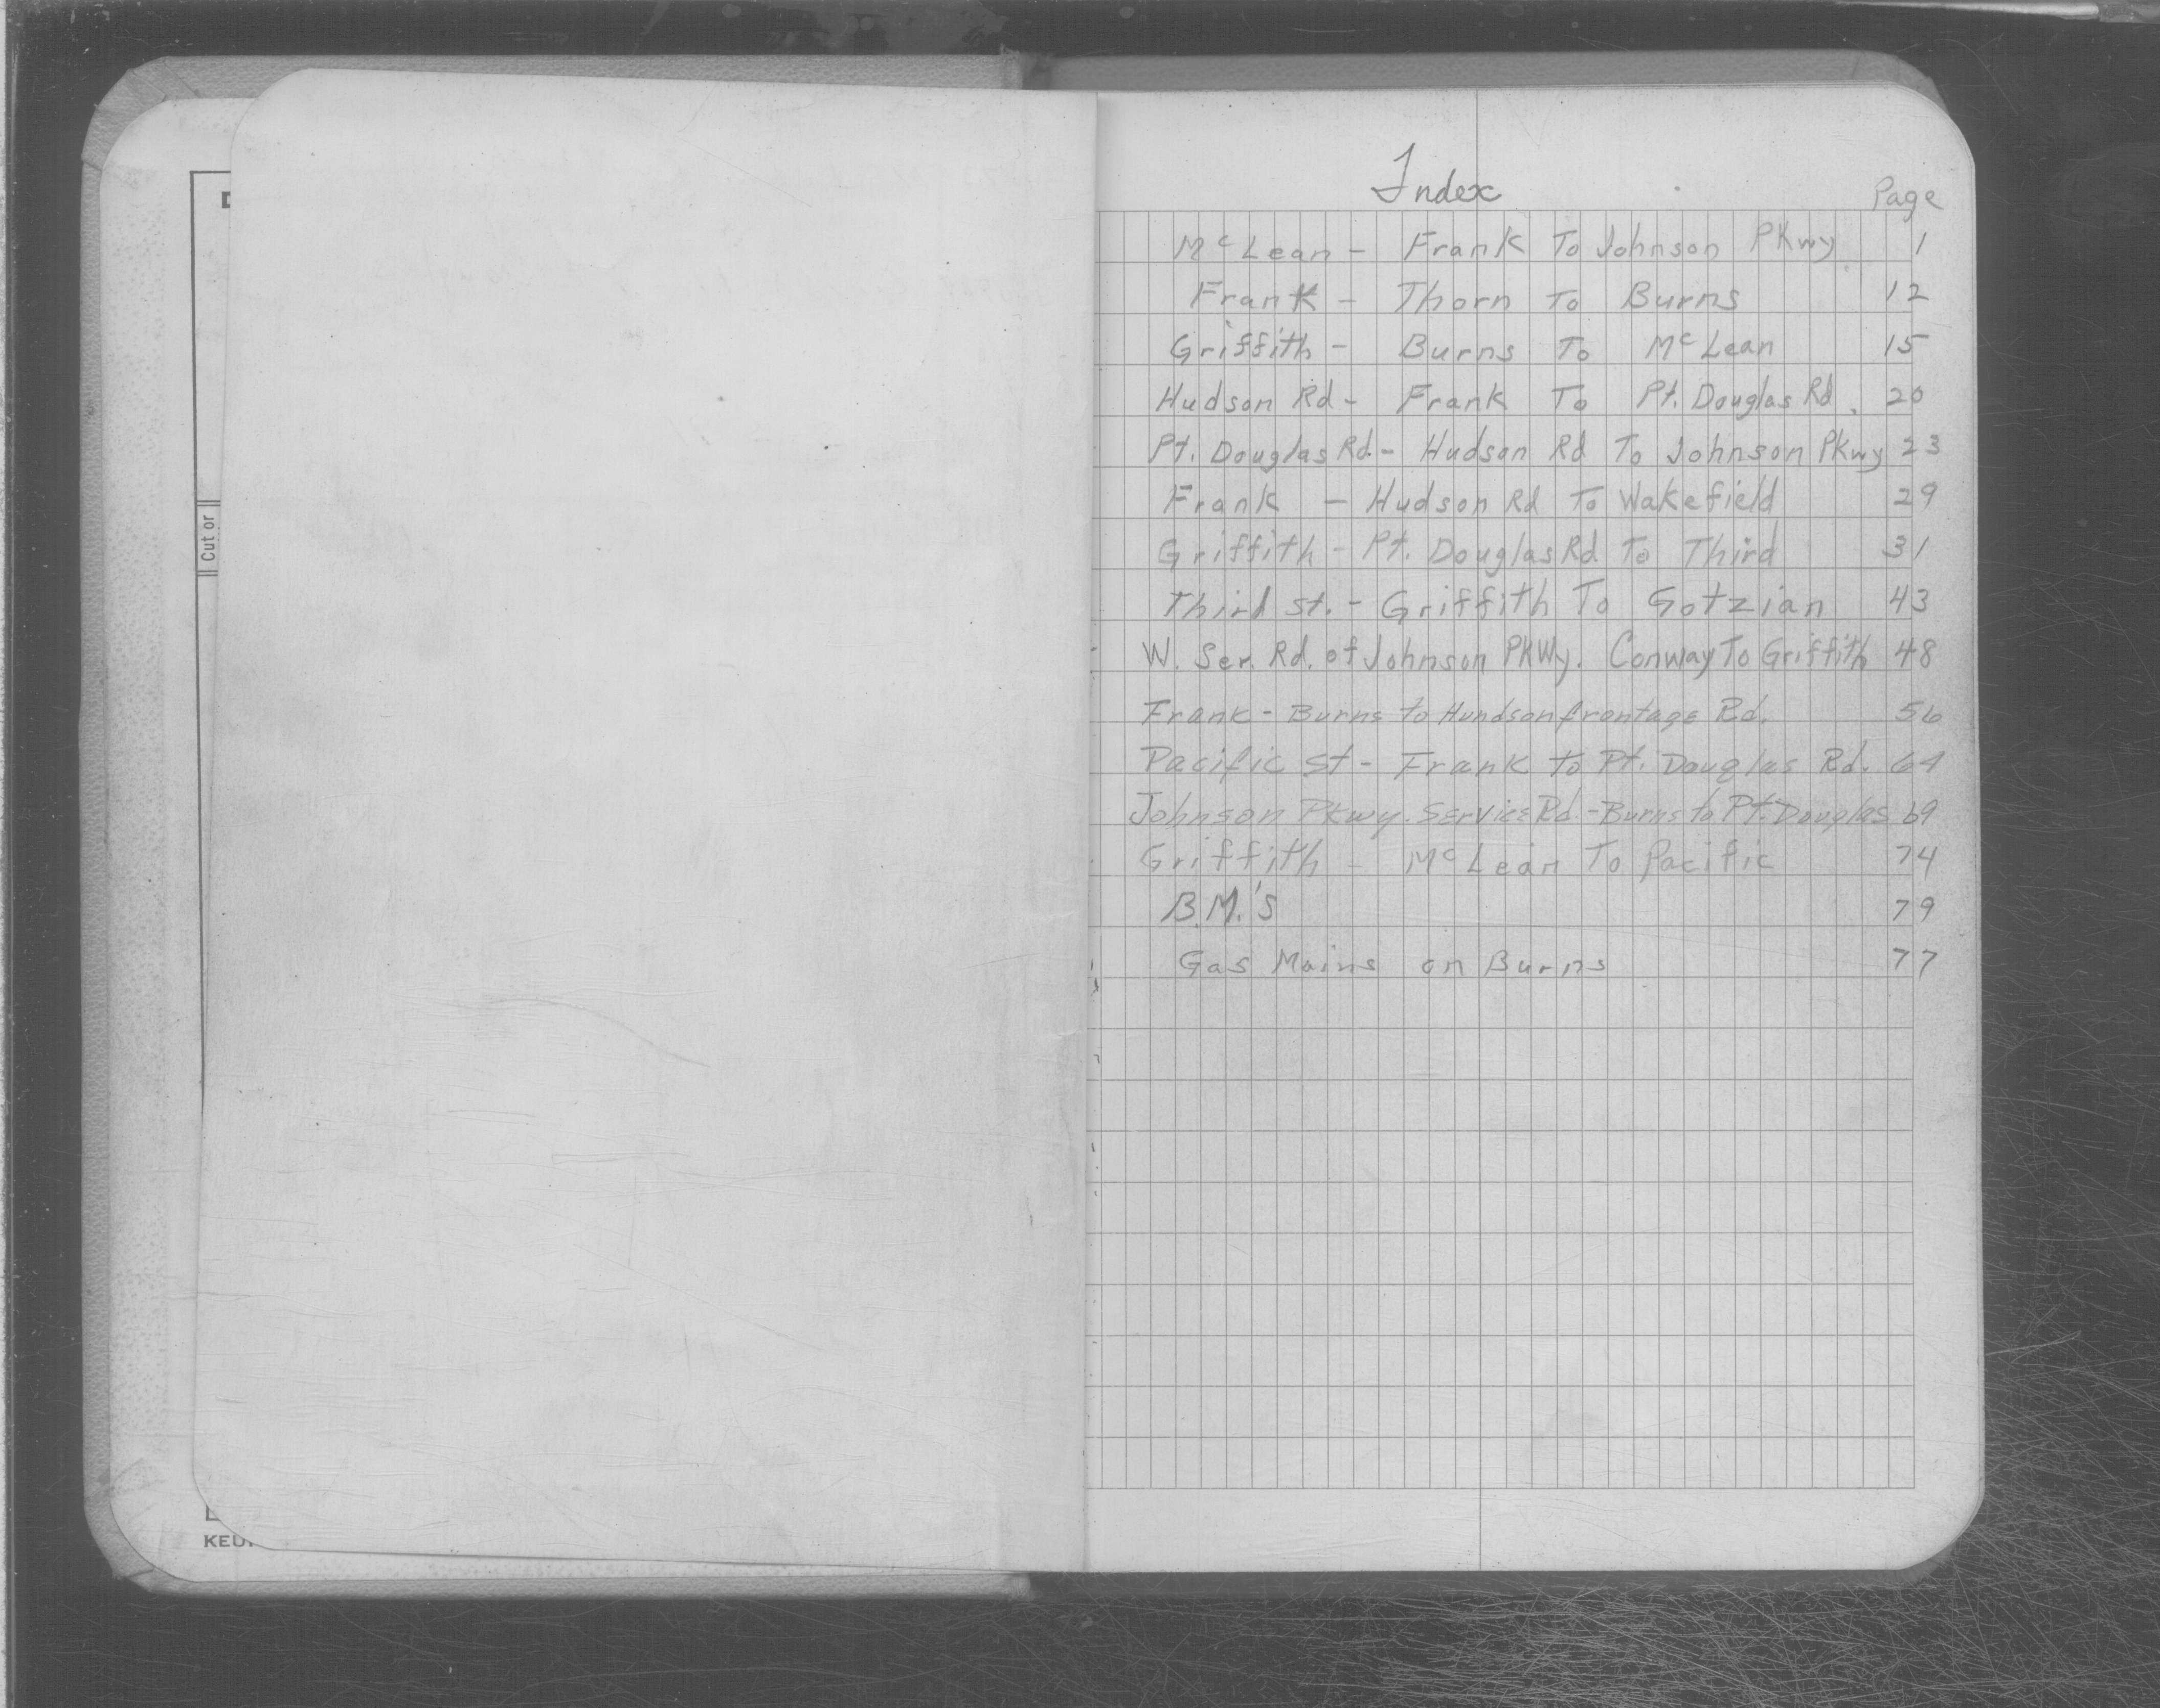 Index
Page
McLean - Frank To Johnson Pkwy 1
Frank - Thorn To Burns 12
Griffith - Burns To McLean 15
Hudson Rd - Frank To Pt. Douglas Rd. 20
Pt. Douglas Rd. - Hudson Rd To Johnson Pkwy 23
Frank - Hudson Rd To Wakefield 29
Griffith - Pt. Douglas Rd To Third 31
Third St. - Griffith To Gotzian 43
W. Ser. Rd. of Johnson PKWy. Conway To Griffith 48
Frank - Burns to Hundson frontage Rd. 56
Pacific St - Frank to Pt. Douglas Rd. 64
Johnson Pkwy. Service Rd. - Burns to Pt. Douglas 69
Griffith - McLean To Pacific 74
B.M.'s 79
Gas Mains on Burns 77
Cut or